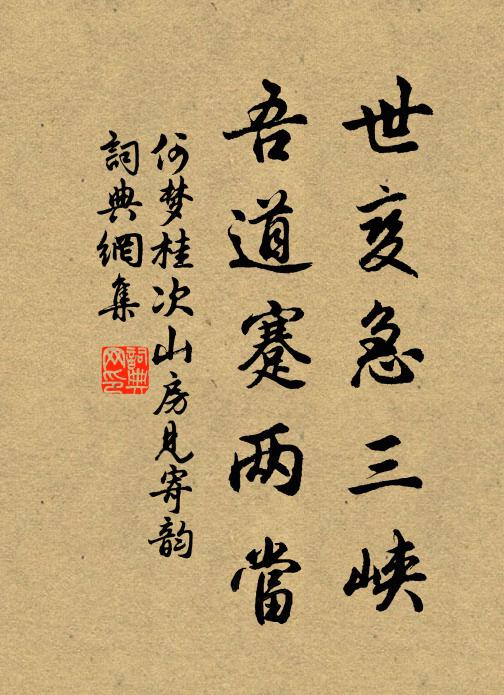 世变急三峡
吾道蹇两當
何梦桂次山房見寄韵
詞典網集
詞典网印